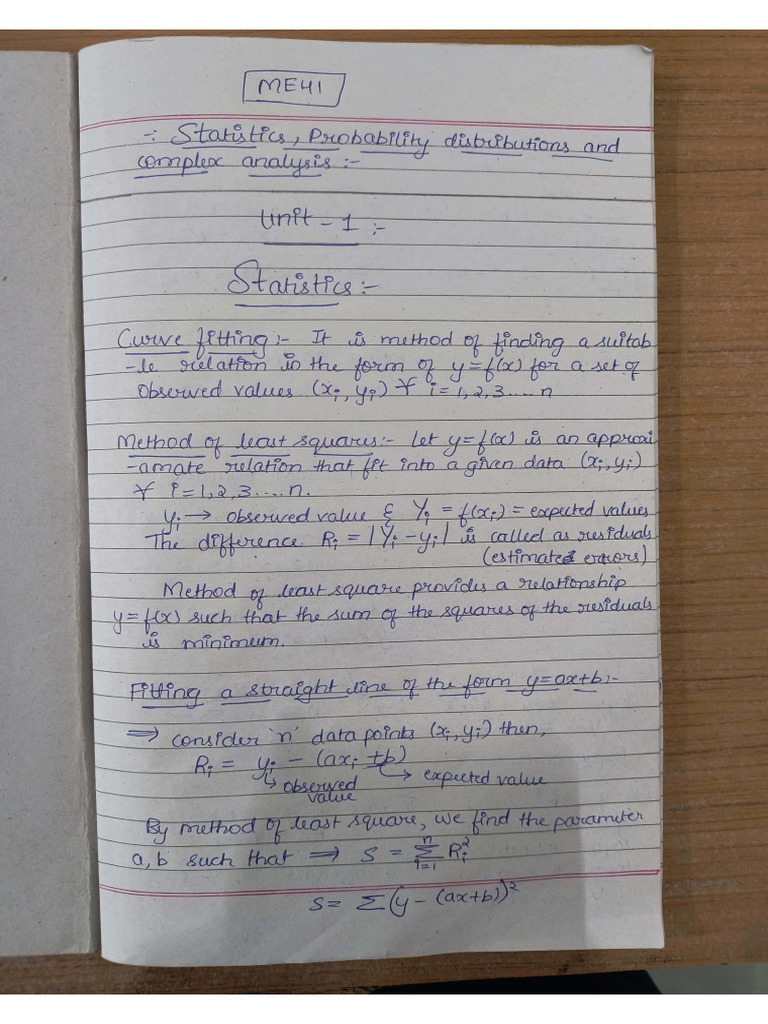 ME41
-: Statistics, Probability distributions and
complex analysis :-
Unit - 1 :-
Statistics :-
Curve fitting :- It is method of finding a suitab
-le relation in the form of y=f(x) for a set of
observed values (xi, yi) ∀ i=1,2,3....n
Method of least squares:- Let y=f(x) is an approxi
-amate relation that fit into a given data (xi, yi)
∀ i=1,2,3....n.
yi → observed value & Yi = f(xi) = expected values
The difference Ri = |Yi - yi| is called as residuals
(estimated errors)
Method of least square provides a relationship
y=f(x) such that the sum of the squares of the residuals
is minimum.
Fitting a straight line of the form y=ax+b :-
⇒ consider 'n' data points (xi, yi) then,
Ri = yi - (axi + b)
↳ observed value → expected value
By method of least square, we find the parameter
a, b such that ⇒ S = Σ_{i=1}^{n} Ri²
S = Σ(y - (ax+b))²